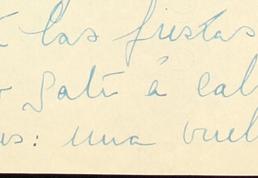 las fiestas
á cal
us: una vuel